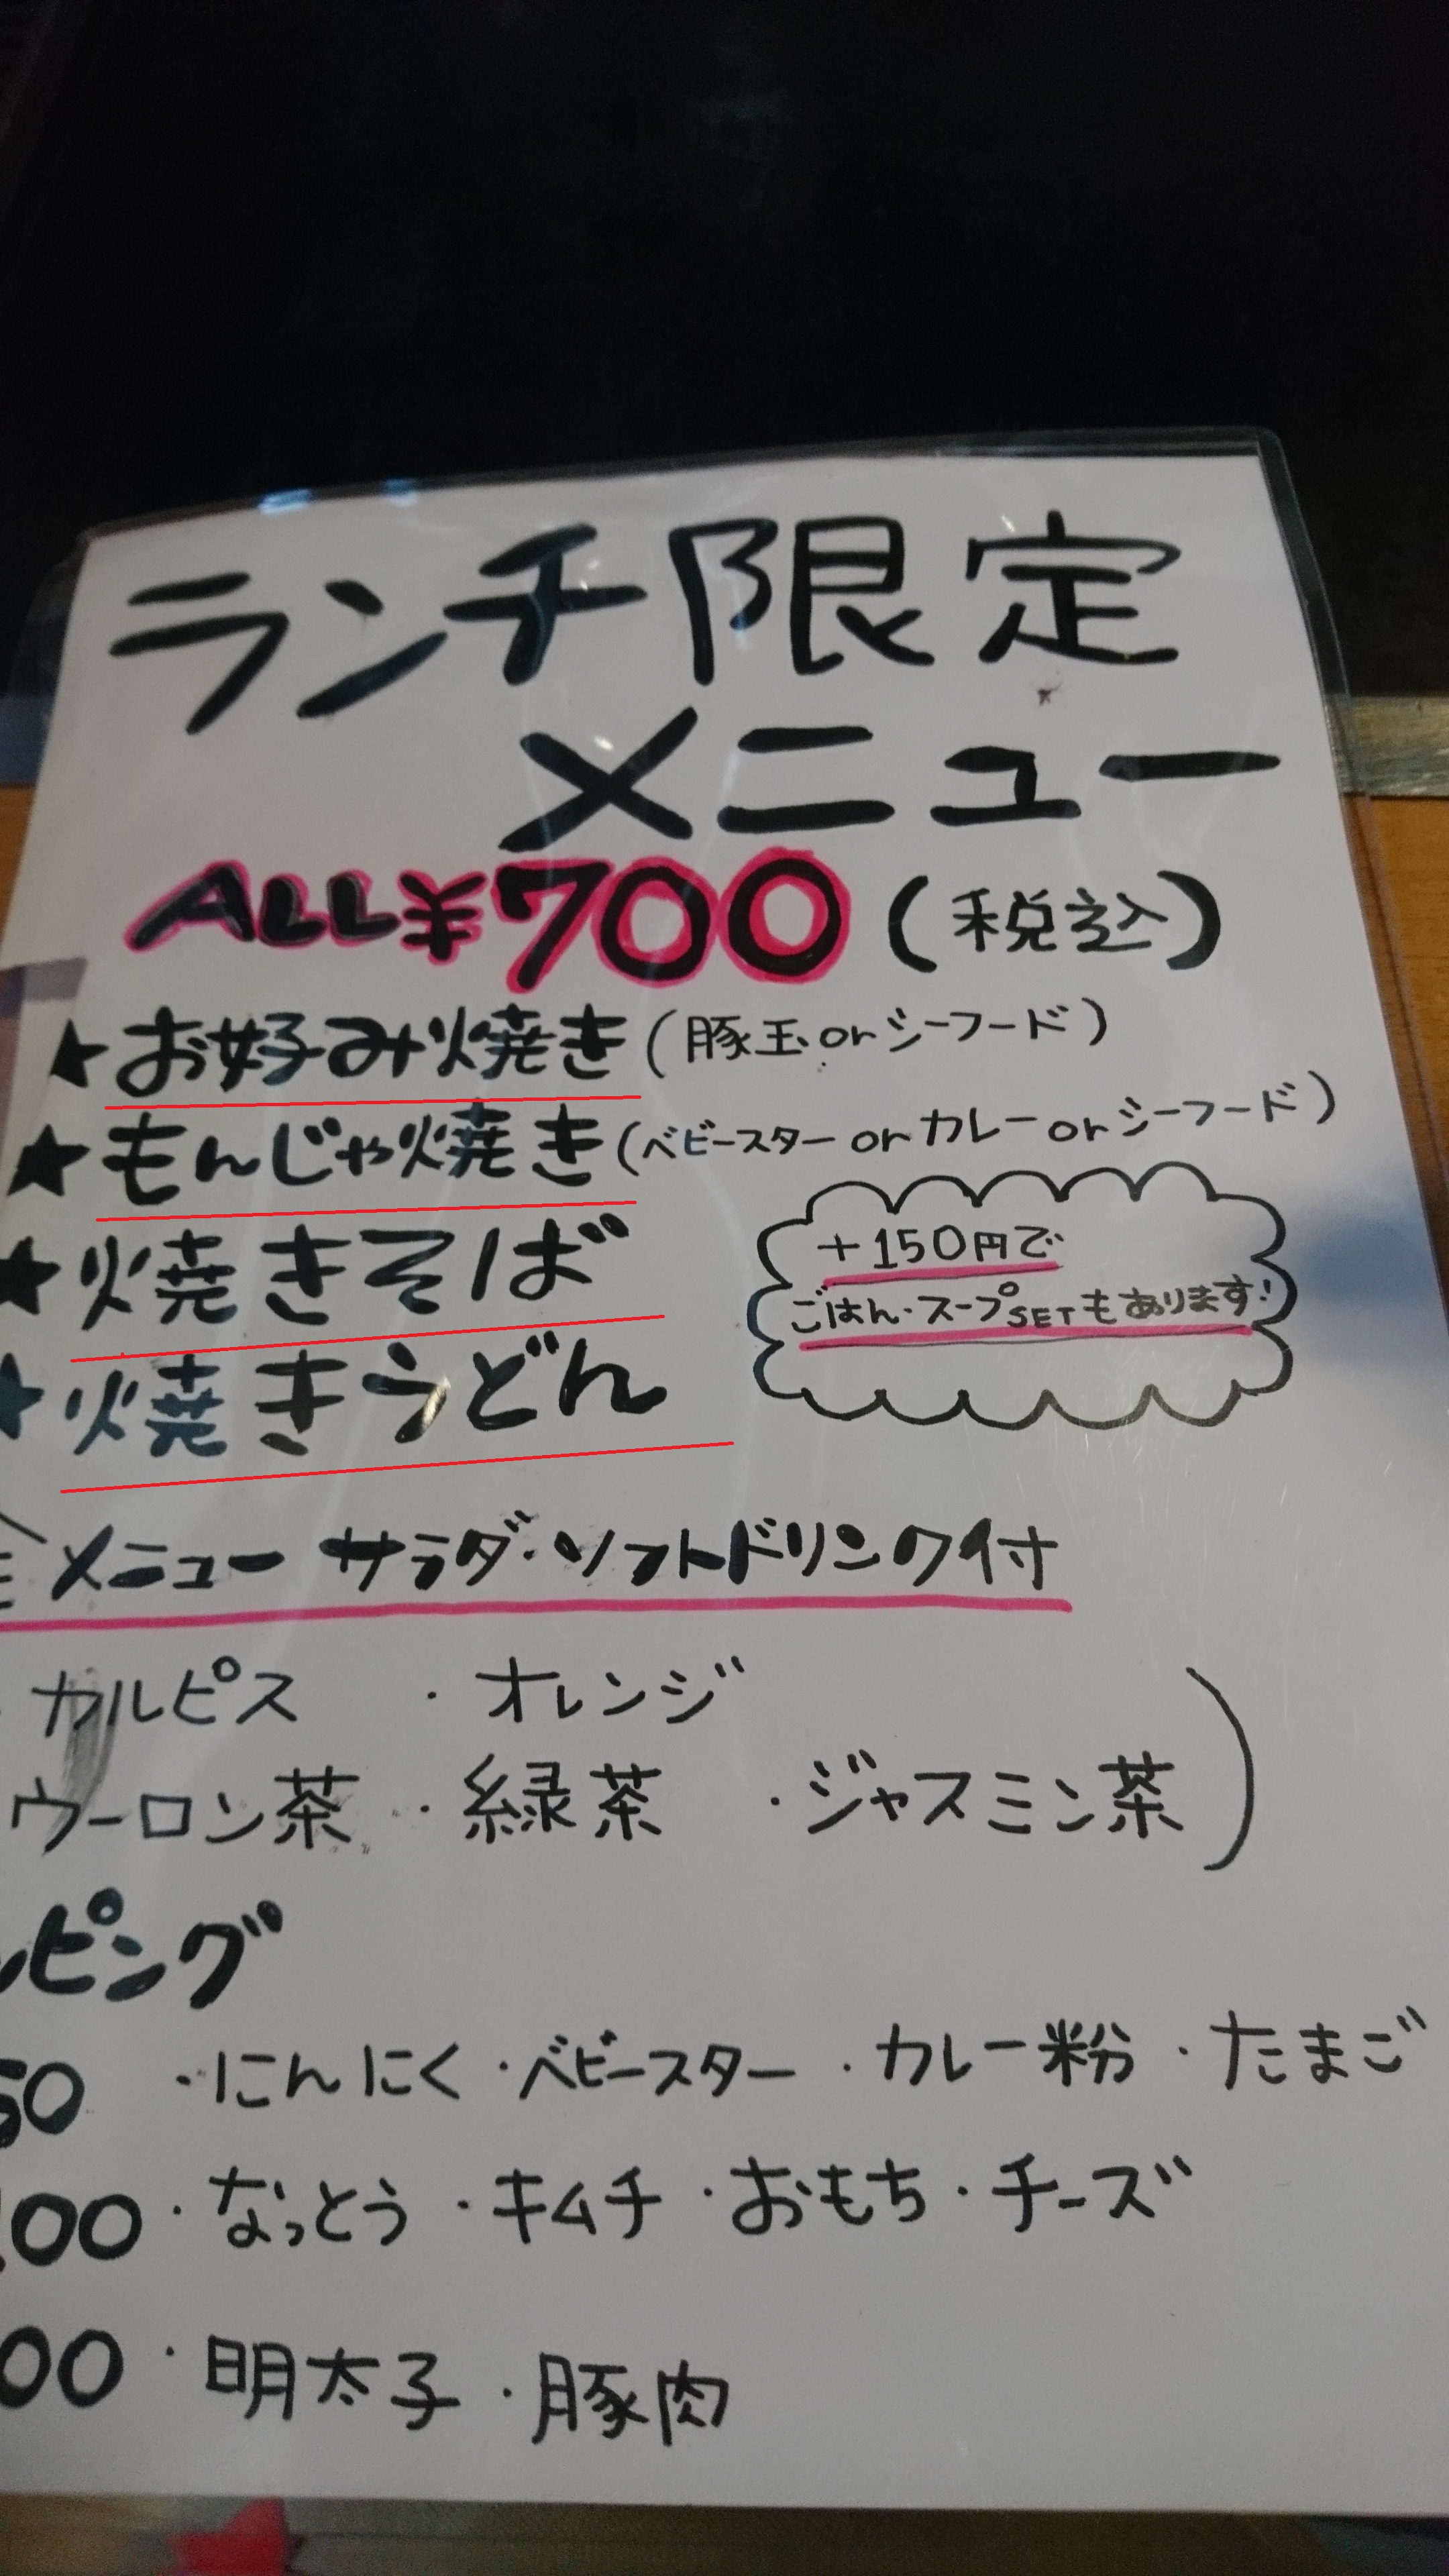 ランチ限定
メニュー
ALL¥700(税込)
★お好み焼き(豚玉orシーフード)
★もんじゃ焼き(ベビースターorカレーorシーフード)
★焼きそば
★焼きうどん
+150円で
ごはん・スープSETもあります!
メニュー サラダ・ソフトドリンク付
カルピス ・オレンジ
ウーロン茶 ・緑茶 ・ジャスミン茶)
ピング
50 ・にんにく・ベビースター・カレー粉・たまご
00・なっとう・キムチ・おもち・チーズ
00・明太子・豚肉